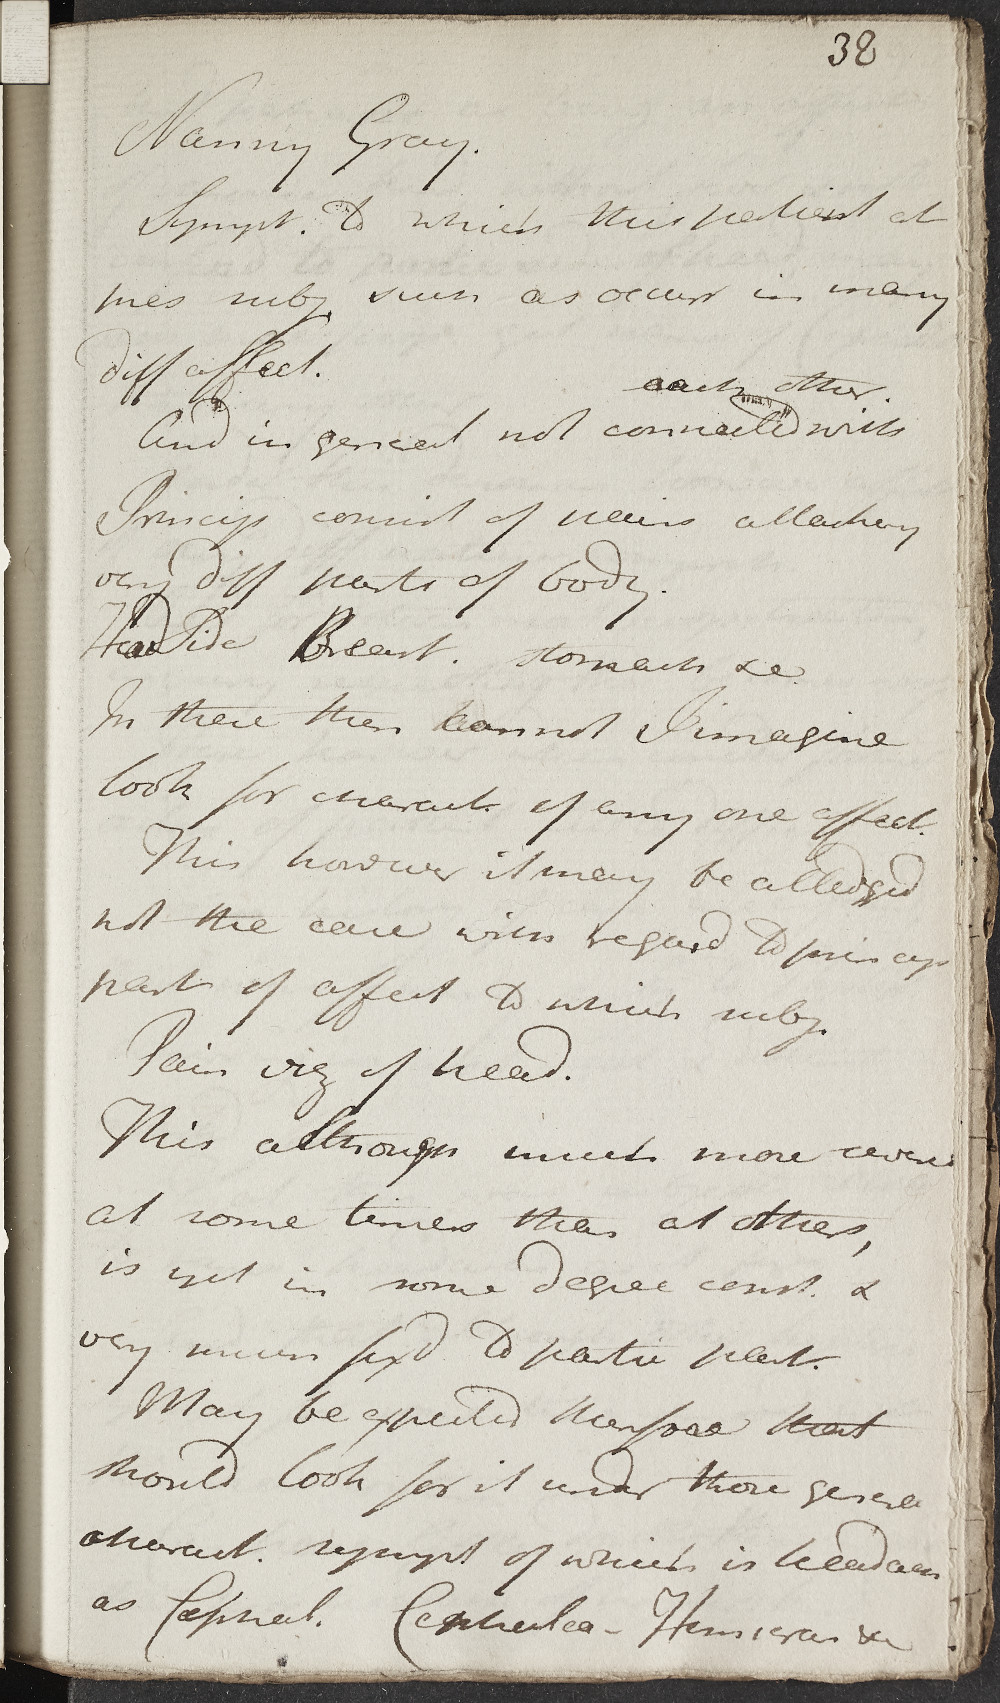 38
Nanny Gray.
Sympt. to which this patient at
pres subj. such as occur in many
diff affect.
each other.
And in general not connected with
Princip consist of pains attacking
very diff parts of body.
Head Side Breast. stomach &c.
In these then cannot I imagine
look for charact. of any one affect.
This however it may be alledged
not the case with regard to princip
part of affect to which subj.
Pain viz of head.
This although much more severe
at some times than at others,
is yet in some degree const. &
very much fixd to partic part.
May be expected therefore that
should look for it under those genera
charact. sympt of which is headach
as Cephal. Cephalea - Hemicran &c